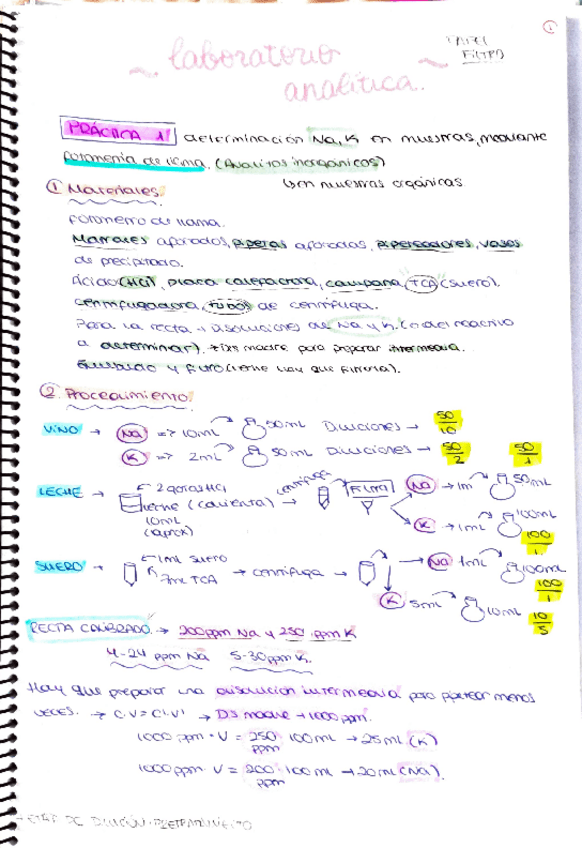 ①
PAPEL
FILTRO
~ laboratorio
analítica. ~
PRÁCTICA 1 determinación Na, K en muestras, mediante
fotometría de llama. (Analitos inorgánicos)
↳ en muestras orgánicas
① Materiales
Fotómetro de llama.
Matraces aforados, pipetas aforadas, dispensadores, vasos
de precipitado.
Ácido (HCl), placa calefactora, campana, TCA (suero).
Centrifugadora, tubos de centrífuga.
Para la recta → disoluciones de Na y K. (del reactivo
a determinar). + madre para preparar intermedia.
Embudo y filtro (leche hay que filtrarla).
② Procedimiento
VINO → Na => 10mL 50mL Diluciones → 50/10
K => 2mL 50mL Diluciones → 50/2 50/1
LECHE → ← 2 gotas HCl centrífuga Filtro Na → 1m 50mL
leche (caliente) →
10mL K → 1mL 100mL
(aprox) 100/1
SUERO → ← 1mL suero → Na 1mL 100mL
7mL TCA → centrífuga → 100/1
K 5mL 10mL 10/5
RECTA CALIBRADO → 200ppm Na y 250 ppm K
4-24 ppm Na 5-30ppm K.
Hay que preparar una disolución intermedia para pipetear menos
veces. → C·V = C'·V' → DS madre → 1000 ppm.
1000 ppm · V = 250 ppm · 100mL → 25mL (K)
1000ppm · V = 200 ppm · 100mL → 20mL (Na).
DE DILUCIÓN